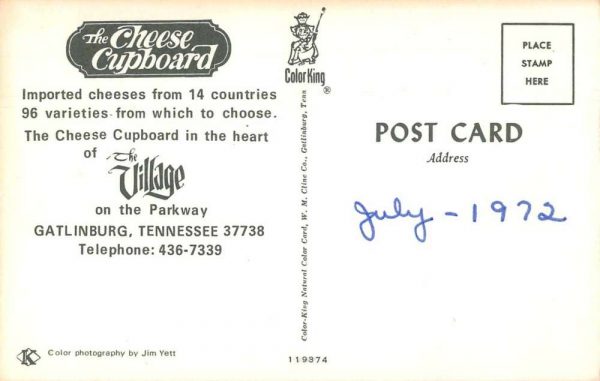 The Cheese
Cupboard
Imported cheeses from 14 countries
96 varieties from which to choose.
The Cheese Cupboard in the heart
of The Village
on the Parkway
GATLINBURG, TENNESSEE 37738
Telephone: 436-7339
K Color photography by Jim Yett
Color King®
Color-King Natural Color Card, W. M. Cline Co., Gatlinburg, Tenn
119374
PLACE
STAMP
HERE
POST CARD
Address
July - 1972